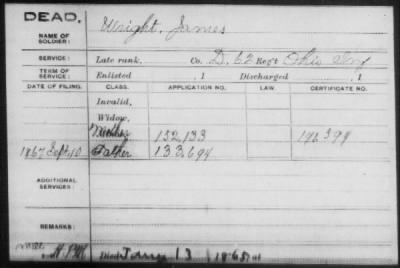 DEAD.
NAME OF SOLDIER: Wright, James
SERVICE: Late rank, Co. D. 62 Reg't Ohio Inf
TERM OF SERVICE: Enlisted , 1 Discharged , 1
DATE OF FILING. CLASS. APPLICATION NO. LAW. CERTIFICATE NO.
Invalid,
Widow,
Mother 152,133
1867 Sept 10 Father 133,694
ADDITIONAL SERVICES:
REMARKS:
Died 13 at